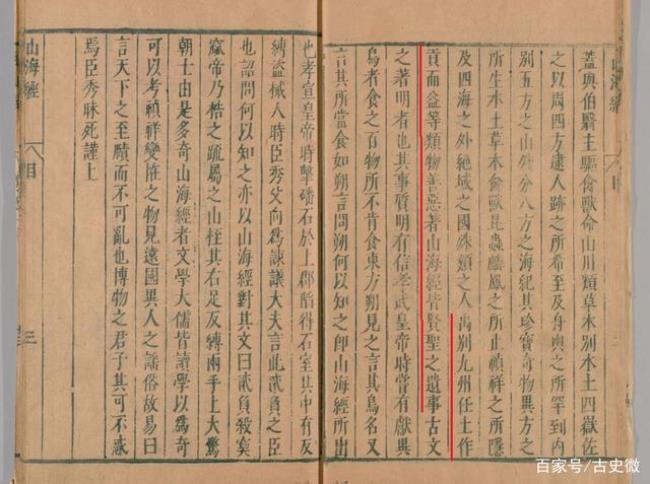 蓋與伯翳主驅禽獸命山川類草木別水土四嶽佐
之以周四方逮人跡之所希至及舟輿之所罕到內
別五方之山外分八方之海紀其珍寶奇物異方之
所生水土草木禽獸昆蟲麟鳳之所止禎祥之所隱
及四海之外絕域之國殊類之人禹別九州任土作
貢而益等類物善惡著山海經皆賢聖之遺事古文
之著明者也其事質明有信孝武皇帝時嘗有獻異
鳥者食之百物所不肯食東方朔見之言其鳥名又
言其所當食如朔言問朔何以知之即山海經所出
也孝宣皇帝時擊磻石於上郡陷得石室其中有反
縛盜械人時臣秀父向為諫議大夫言此貳負之臣
也詔問何以知之亦以山海經對其文曰貳負殺窫
窳帝乃梏之疏屬之山桎其右足反縛兩手上大驚
朝士由是多奇山海經者文學大儒皆讀學以為奇
可以考禎祥變怪之物見遠國異人之謠俗故易曰
言天下之至賾而不可亂也博物之君子其可不惑
焉臣秀昧死謹上
山海經 目 三
百家号/古史微